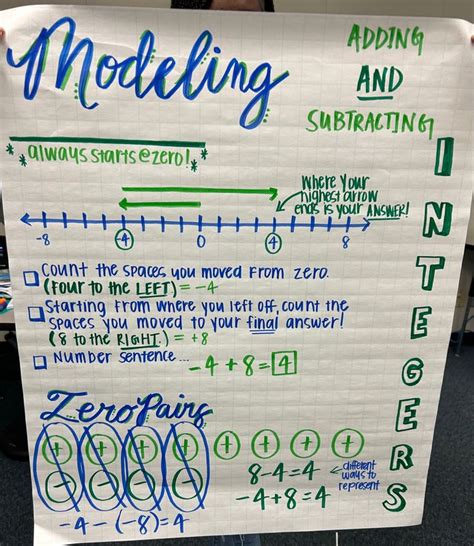 Modeling
ADDING
AND
SUBTRACTING
INTEGERS
*always starts @ zero!*
Where Your
highest arrow
ends is your ANSWER!
-8 -4 0 4 8
Count the spaces you moved from zero.
(Four to the LEFT) = -4
Starting from where you left off, count the
spaces you moved to your final answer!
(8 to the RIGHT) = +8
Number sentence... -4 + 8 = 4
Zero Pairs
+ + + + + + + +
- - - -
8-4=4
different
ways to
represent
-4+8=4
-4-(-8)=4